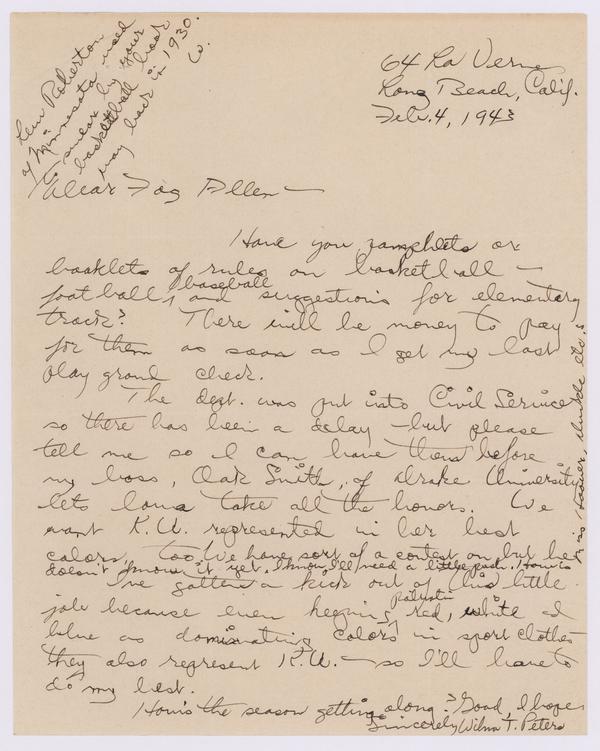 Lew Roberton
of Minnesota used
to swear by your
basketball book
way back in 1930.
W.
64 La Verne
Long Beach, Calif.
Feb. 4, 1943
Dear Fog Allen —
Have you pamphlets or
booklets of rules on basketball —
football, baseball and suggestions for elementary
track? There will be money to pay
for them as soon as I get my last
play ground check.
The dept. was put into Civil Service
so there has been a delay — but please
tell me so I can have them before
my boss, Oak Smith, of Drake University
lets Iowa take all the honors. We
want K.U. represented in her best
colors, too. We have sort of a contest on, but he
doesn't know it yet. I know I'll need a little push. How is
Hoover, Dunkle etc.?
I've gotten a kick out of this little
job because even keeping patriotic red, white &
blue as dominating colors in sport clothes
they also represent K.U. — so I'll have to
do my best.
How's the season getting along? Good, I hope
Sincerely Wilma T. Peters